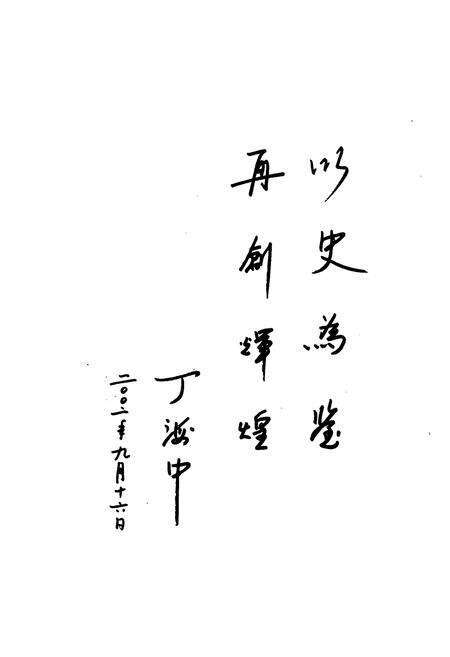 以史為鉴
再創輝煌
丁海中
二〇〇二年九月十六日